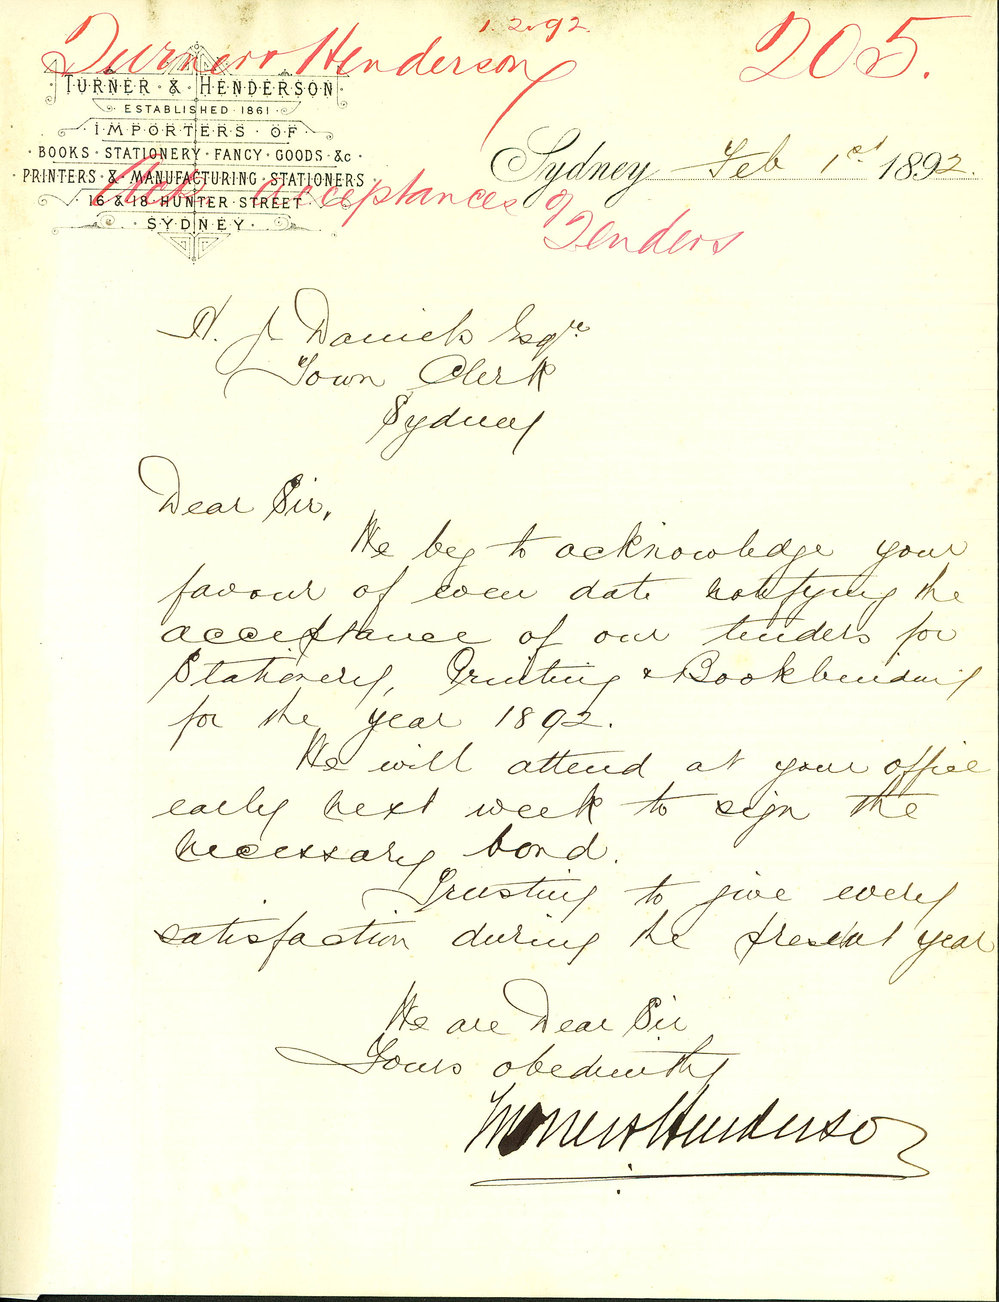 1.2.92
Turner & Henderson
205.
TURNER & HENDERSON
ESTABLISHED 1861
IMPORTERS OF
BOOKS · STATIONERY · FANCY · GOODS · &c
PRINTERS · & · MANUFACTURING · STATIONERS
16 & 18 HUNTER STREET
SYDNEY
Sydney Feb 1st 1892.
Ack acceptances of
Tenders
H. J Daniels Esqre
Town Clerk
Sydney
Dear Sir,
We beg to acknowledge your
favour of even date notifying the
acceptance of our tenders for
Stationery, Printing & Bookbinding
for the year 1892.
We will attend at your office
early next week to sign the
necessary bond.
Trusting to give every
satisfaction during the present year
We are Dear Sir
Yours obediently
Turner & Henderson